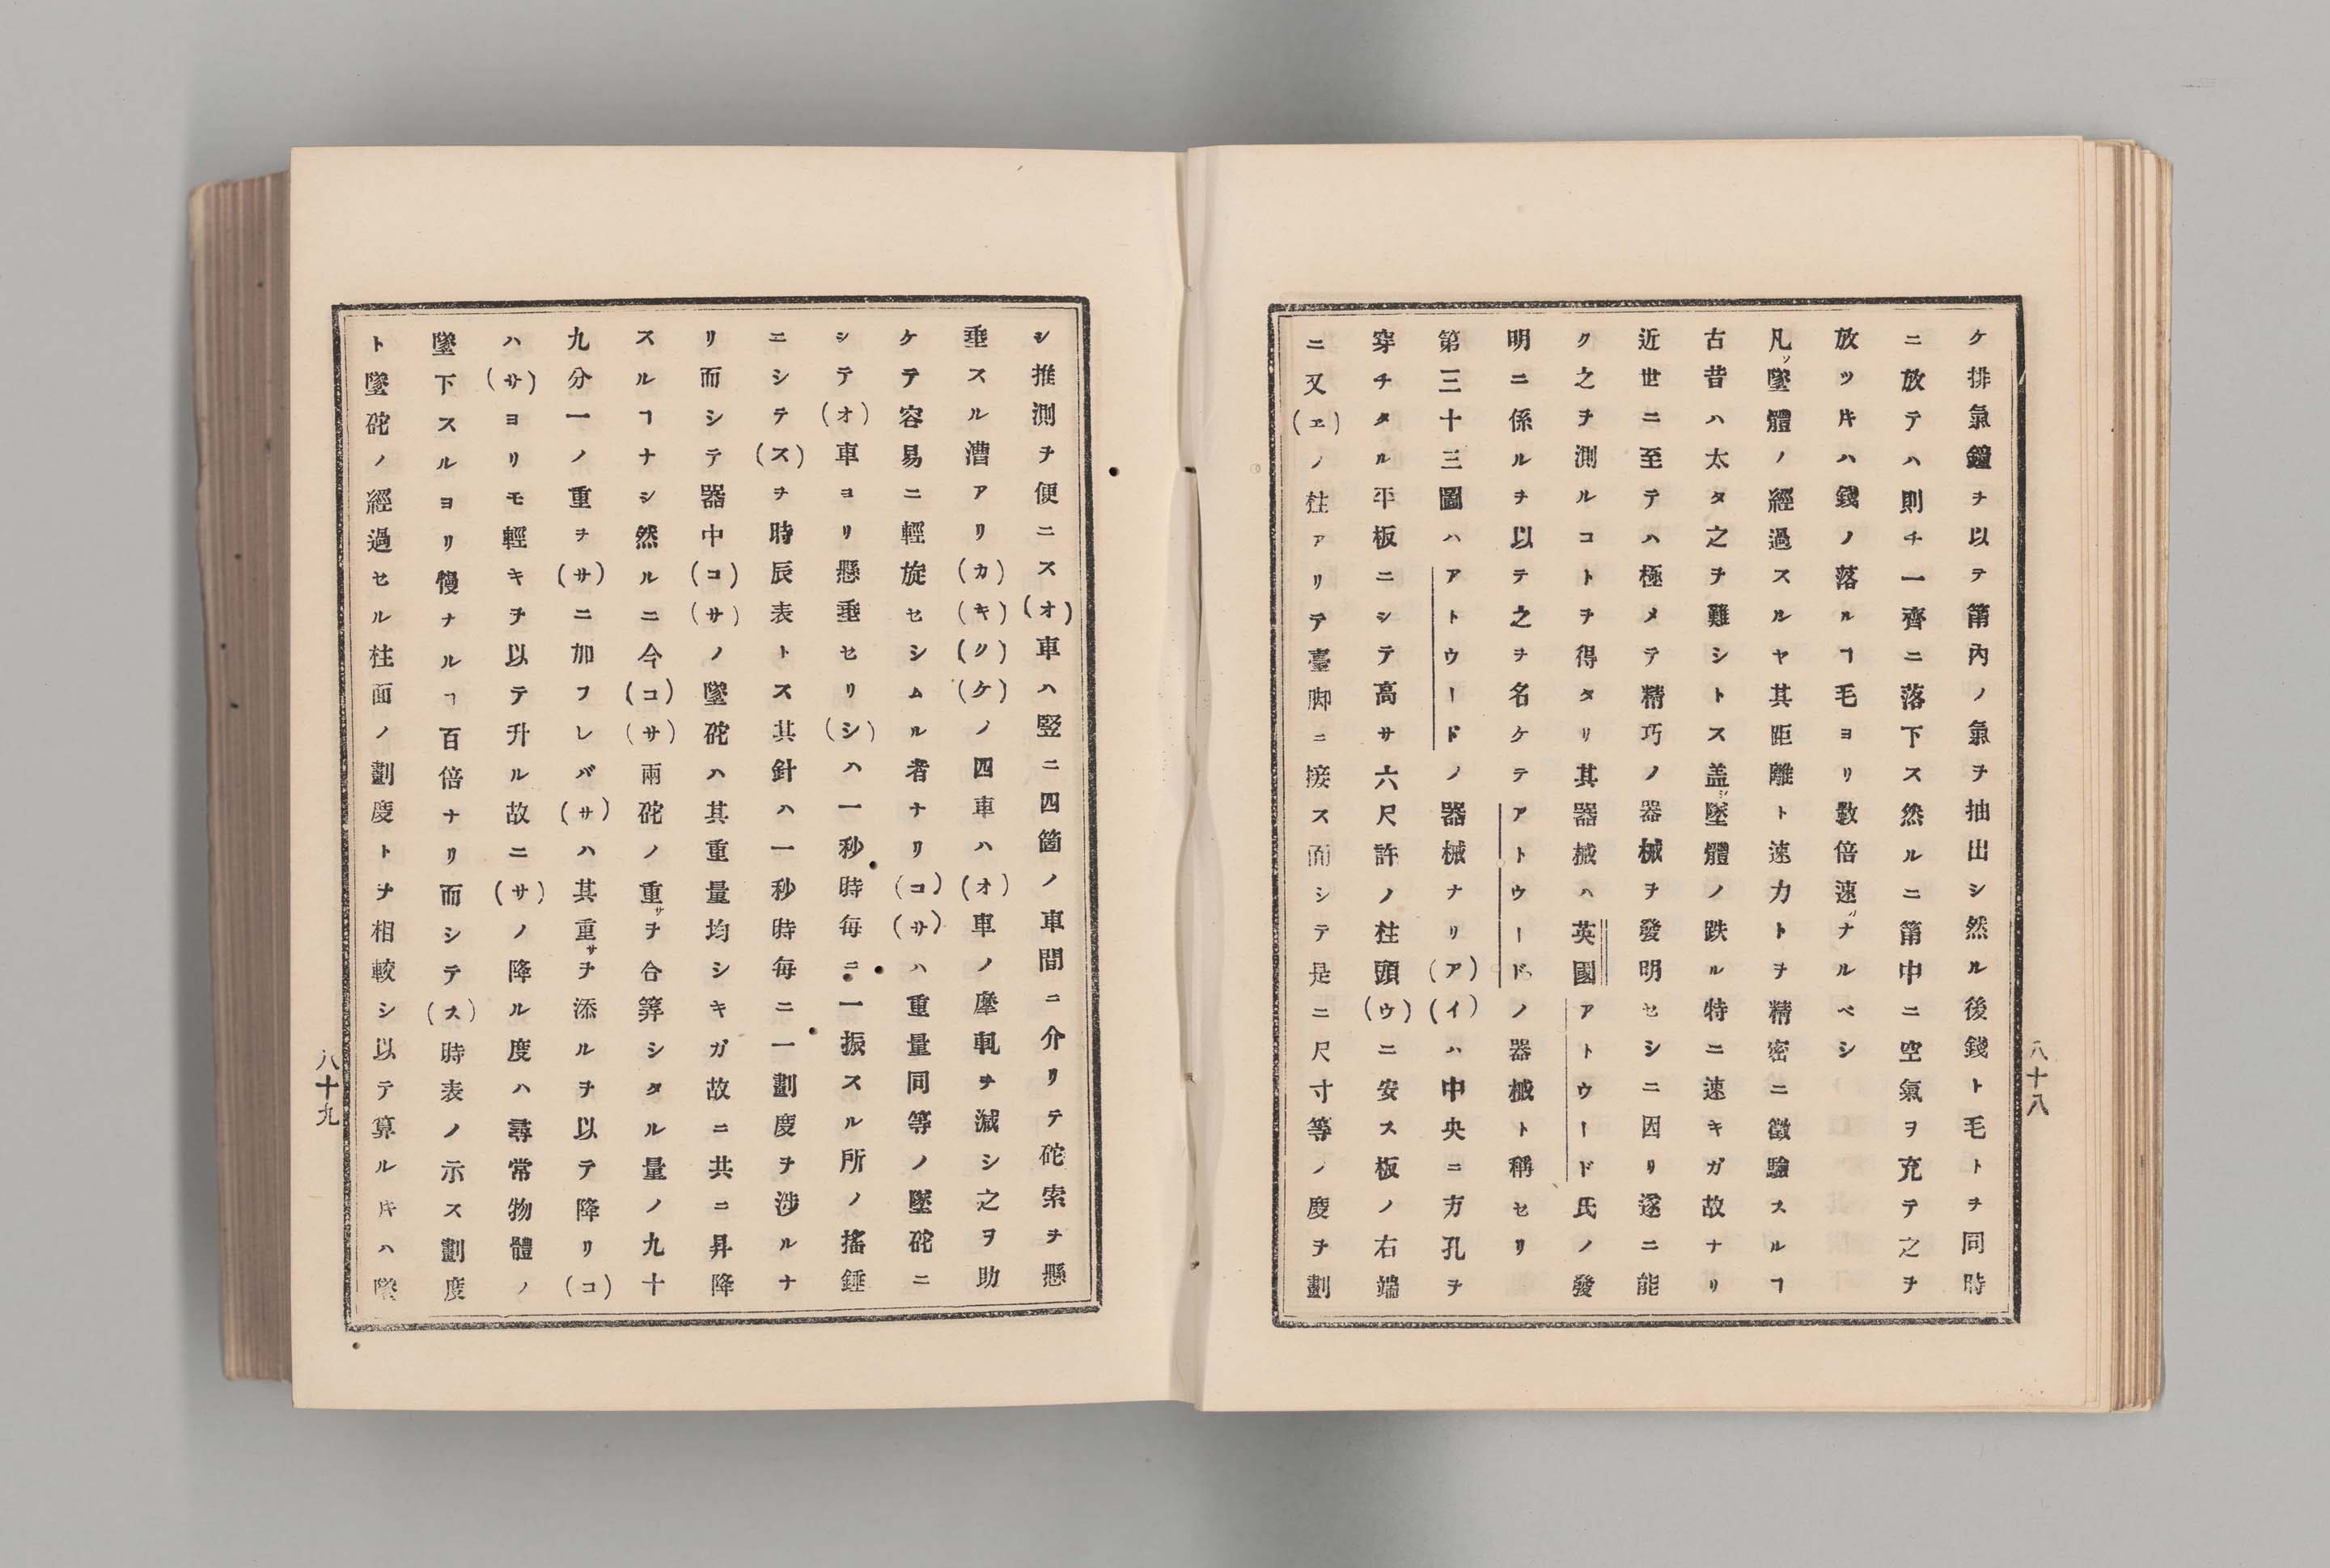 ケ排氣鐘ヲ以テ筩內ノ氣ヲ抽出シ然ル後錢ト毛トヲ同時
ニ放テハ則チ一齊ニ落下ス然ルニ筩中ニ空氣ヲ充テ之ヲ
放ツ𪜈ハ錢ノ落ルヿ毛ヨリ數倍速ナルベシ
凡ソ墜體ノ經過スルヤ其距離ト速力トヲ精密ニ徵驗スルヿ
古昔ハ太タ之ヲ難シトス盖シ墜體ノ跌ル特ニ速キガ故ナリ
近世ニ至テハ極メテ精巧ノ器械ヲ發明セシニ因リ遂ニ能
ク之ヲ測ルコトヲ得タリ其器械ハ英國アトウード氏ノ發
明ニ係ルヲ以テ之ヲ名ケテアトウードノ器械ト稱セリ
第三十三圖ハアトウードノ器械ナリ(ア)(イ)ハ中央ニ方孔ヲ
穿チタル平板ニシテ高サ六尺許ノ柱頭(ウ)ニ安ス板ノ右端
ニ又(ヱ)ノ柱アリテ臺脚ニ接ス而シテ是ニ尺寸等ノ度ヲ劃
八十八
シ推測ヲ便ニス(オ)車ハ竪ニ四箇ノ車間ニ介リテ砣索ヲ懸
垂スル漕アリ(カ)(キ)(ク)(ケ)ノ四車ハ(オ)車ノ摩軋ヲ減シ之ヲ助
ケテ容易ニ輕旋セシムル者ナリ(コ)(サ)ハ重量同等ノ墜砣ニ
シテ(オ)車ヨリ懸垂セリ(シ)ハ一秒時每ニ一振スル所ノ搖錘
ニシテ(ス)ヲ時辰表トス其針ハ一秒時每ニ一劃度ヲ涉ルナ
リ而シテ器中(コ)(サ)ノ墜砣ハ其重量均シキガ故ニ共ニ昇降
スルヿナシ然ルニ今(コ)(サ)兩砣ノ重サヲ合筭シタル量ノ九十
九分一ノ重ヲ(サ)ニ加フレバ(サ)ハ其重サヲ添ルヲ以テ降リ(コ)
ハ(サ)ヨリモ輕キヲ以テ升ル故ニ(サ)ノ降ル度ハ尋常物體ノ
墜下スルヨリ慢ナルヿ百倍ナリ而シテ(ス)時表ノ示ス劃度
ト墜砣ノ經過セル柱面ノ劃度トヲ相較シ以テ算ル𪜈ハ墜
八十九